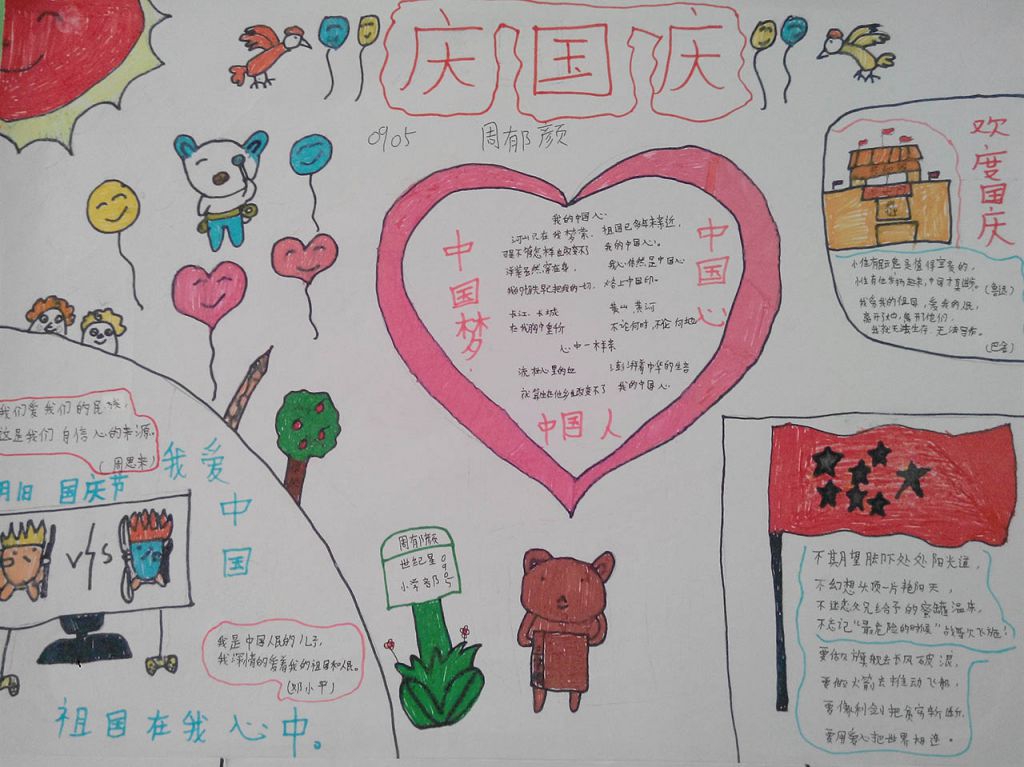 庆国庆
0905 周郁颜
中国梦
中国心
中国人
我的中国心
河山只在我梦萦，祖国已多年未亲近，
可是不管怎样也改变不了 我的中国心。
洋装虽然穿在身， 我心依然是中国心
我的祖先早已把我的一切， 烙上中国印。
长江、长城 黄山、黄河
在我胸中重千斤 不论何时，不论何地
心中一样亲
流在心里的血 澎湃着中华的生音
就算生在他乡也改变不了 我的中国心
欢度国庆
(鲁迅)
我爱我的祖国，爱我的人民，
离开了她，离开他们，
我就无法生存，无法写作。
(巴金)
我们爱我们的民族，
这是我们自信心的来源。
(周恩来)
我爱中国
月1日 国庆节
V/S
我是中国人民的儿子，
我深情的爱着我的祖国和人民。
(邓小平)
祖国在我心中。
周郁颜
世纪星
小学部
0905
不期望脚下处处阳光道，
不幻想头顶一片艳阳天，
不迷恋父兄给予的蜜罐温床，
不忘记“最危险的时候”
要做旗舰去长风破浪，
要做火箭去推动飞船，
要像利剑把贫穷斩断，
要用爱心把世界相连。